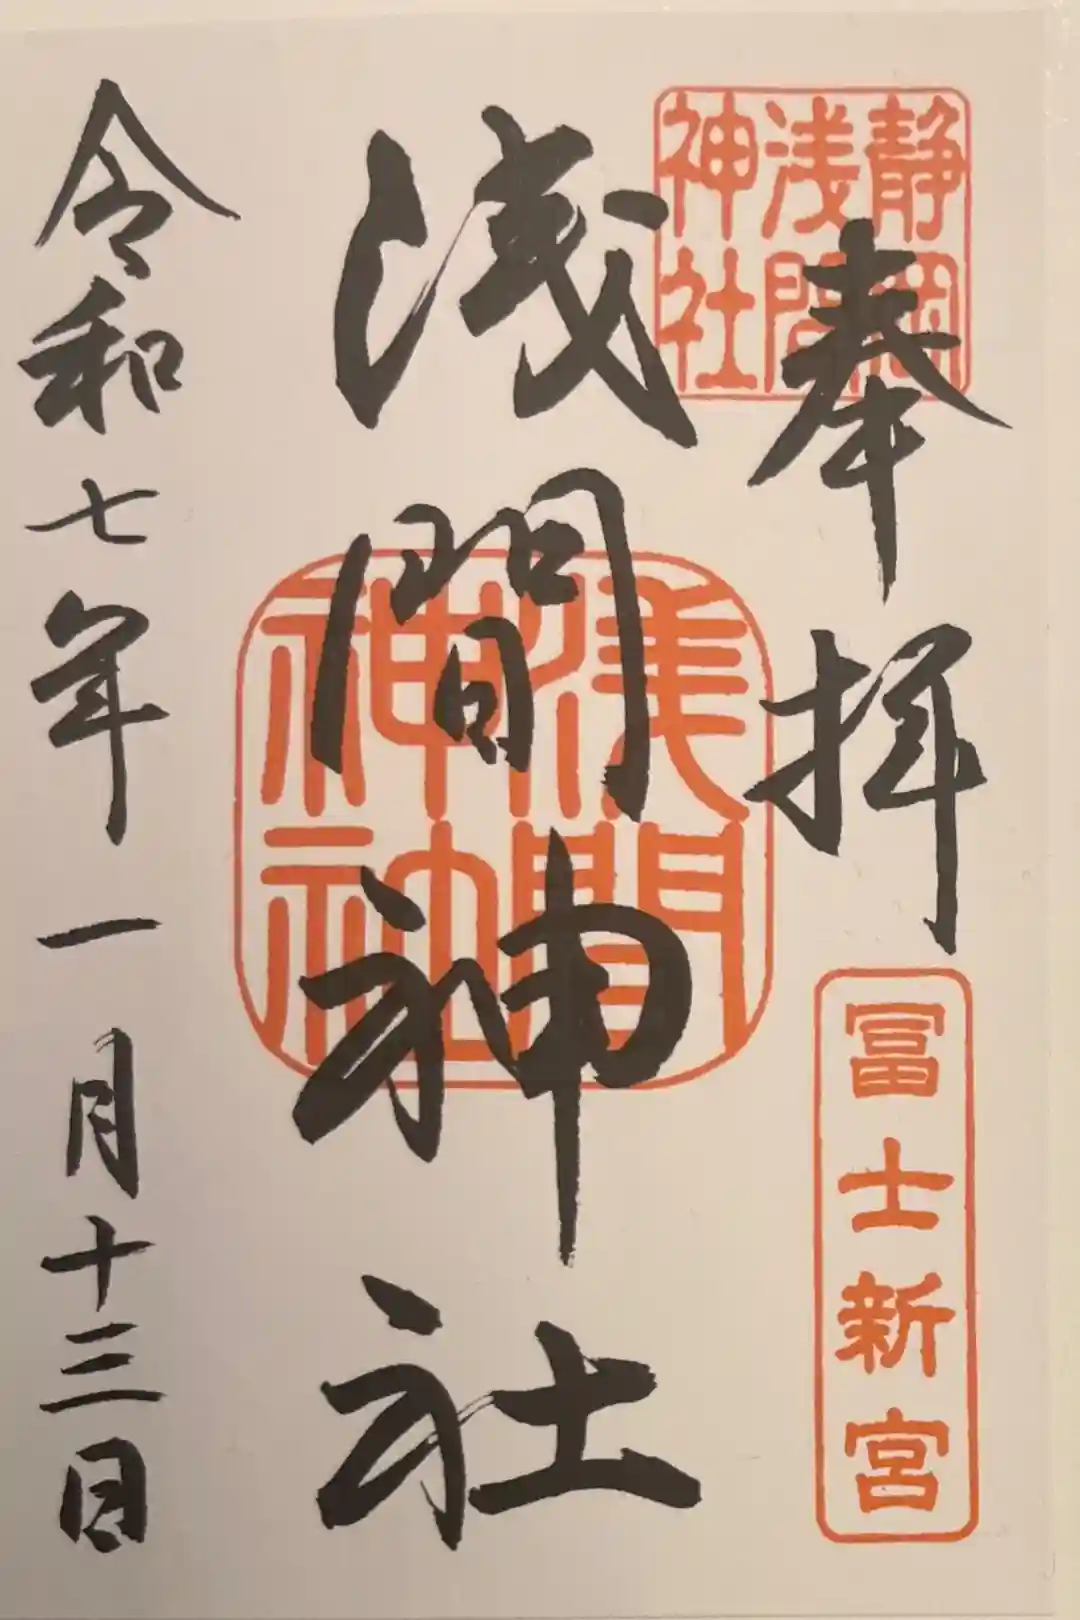 静岡
浅間
神社
奉拝
冨士新宮
浅間神社
浅間
神社
令和七年一月十三日